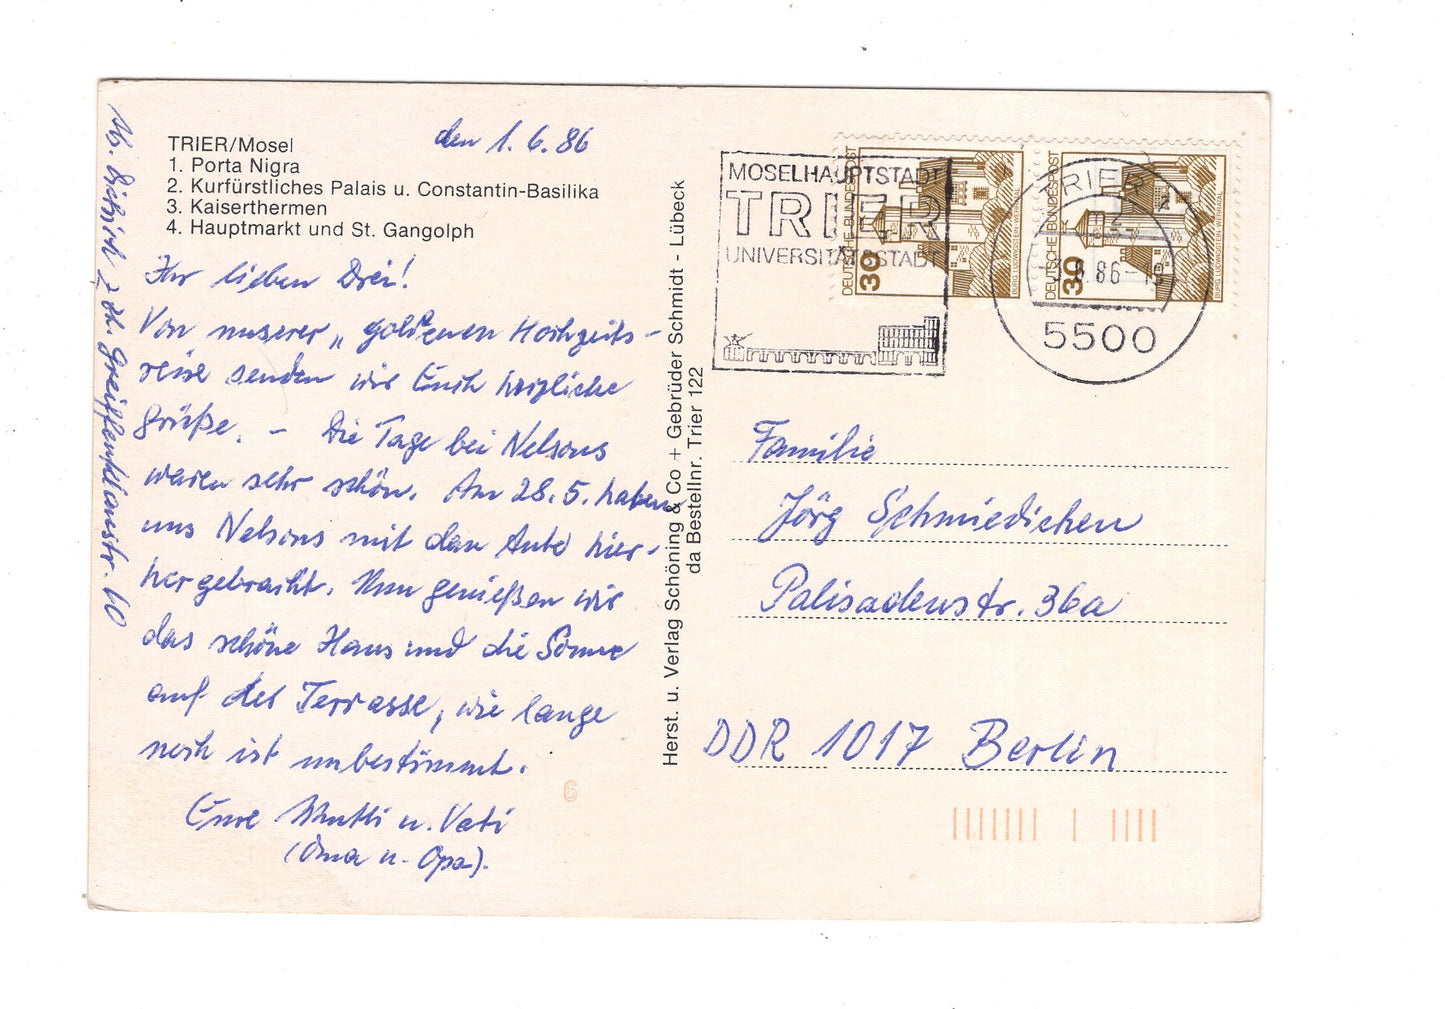 TRIER/Mosel
1. Porta Nigra
2. Kurfürstliches Palais u. Constantin-Basilika
3. Kaiserthermen
4. Hauptmarkt und St. Gangolph
den 1.6.86
Ihr lieben Drei!
Von unserer „goldenen Hochzeits-
reise senden wir Euch herzliche
Grüße. – Die Tage bei Nelsons
waren sehr schön. Am 28.5. haben
uns Nelsons mit dem Auto hier-
her gebracht. Nun genießen wir
das schöne Haus und die Sonne
auf der Terrasse, wie lange
noch ist unbestimmt.
Eure Mutti u. Vati
(Oma u. Opa).
Ab. Dietrich Greiffenklaustr. 10
Herst. u. Verlag Schöning & Co + Gebrüder Schmidt - Lübeck
da Bestellnr. Trier 122
MOSELHAUPTSTADT
TRIER
UNIVERSITÄTSSTADT
DEUTSCHE BUNDESPOST
30
DEUTSCHE BUNDESPOST
30
BURG LUDWIGSTEIN WERRATAL
TRIER
2
z
86-
5500
Familie
Jörg Schmiedichen
Palisadenstr. 36a
DDR 1017 Berlin
6